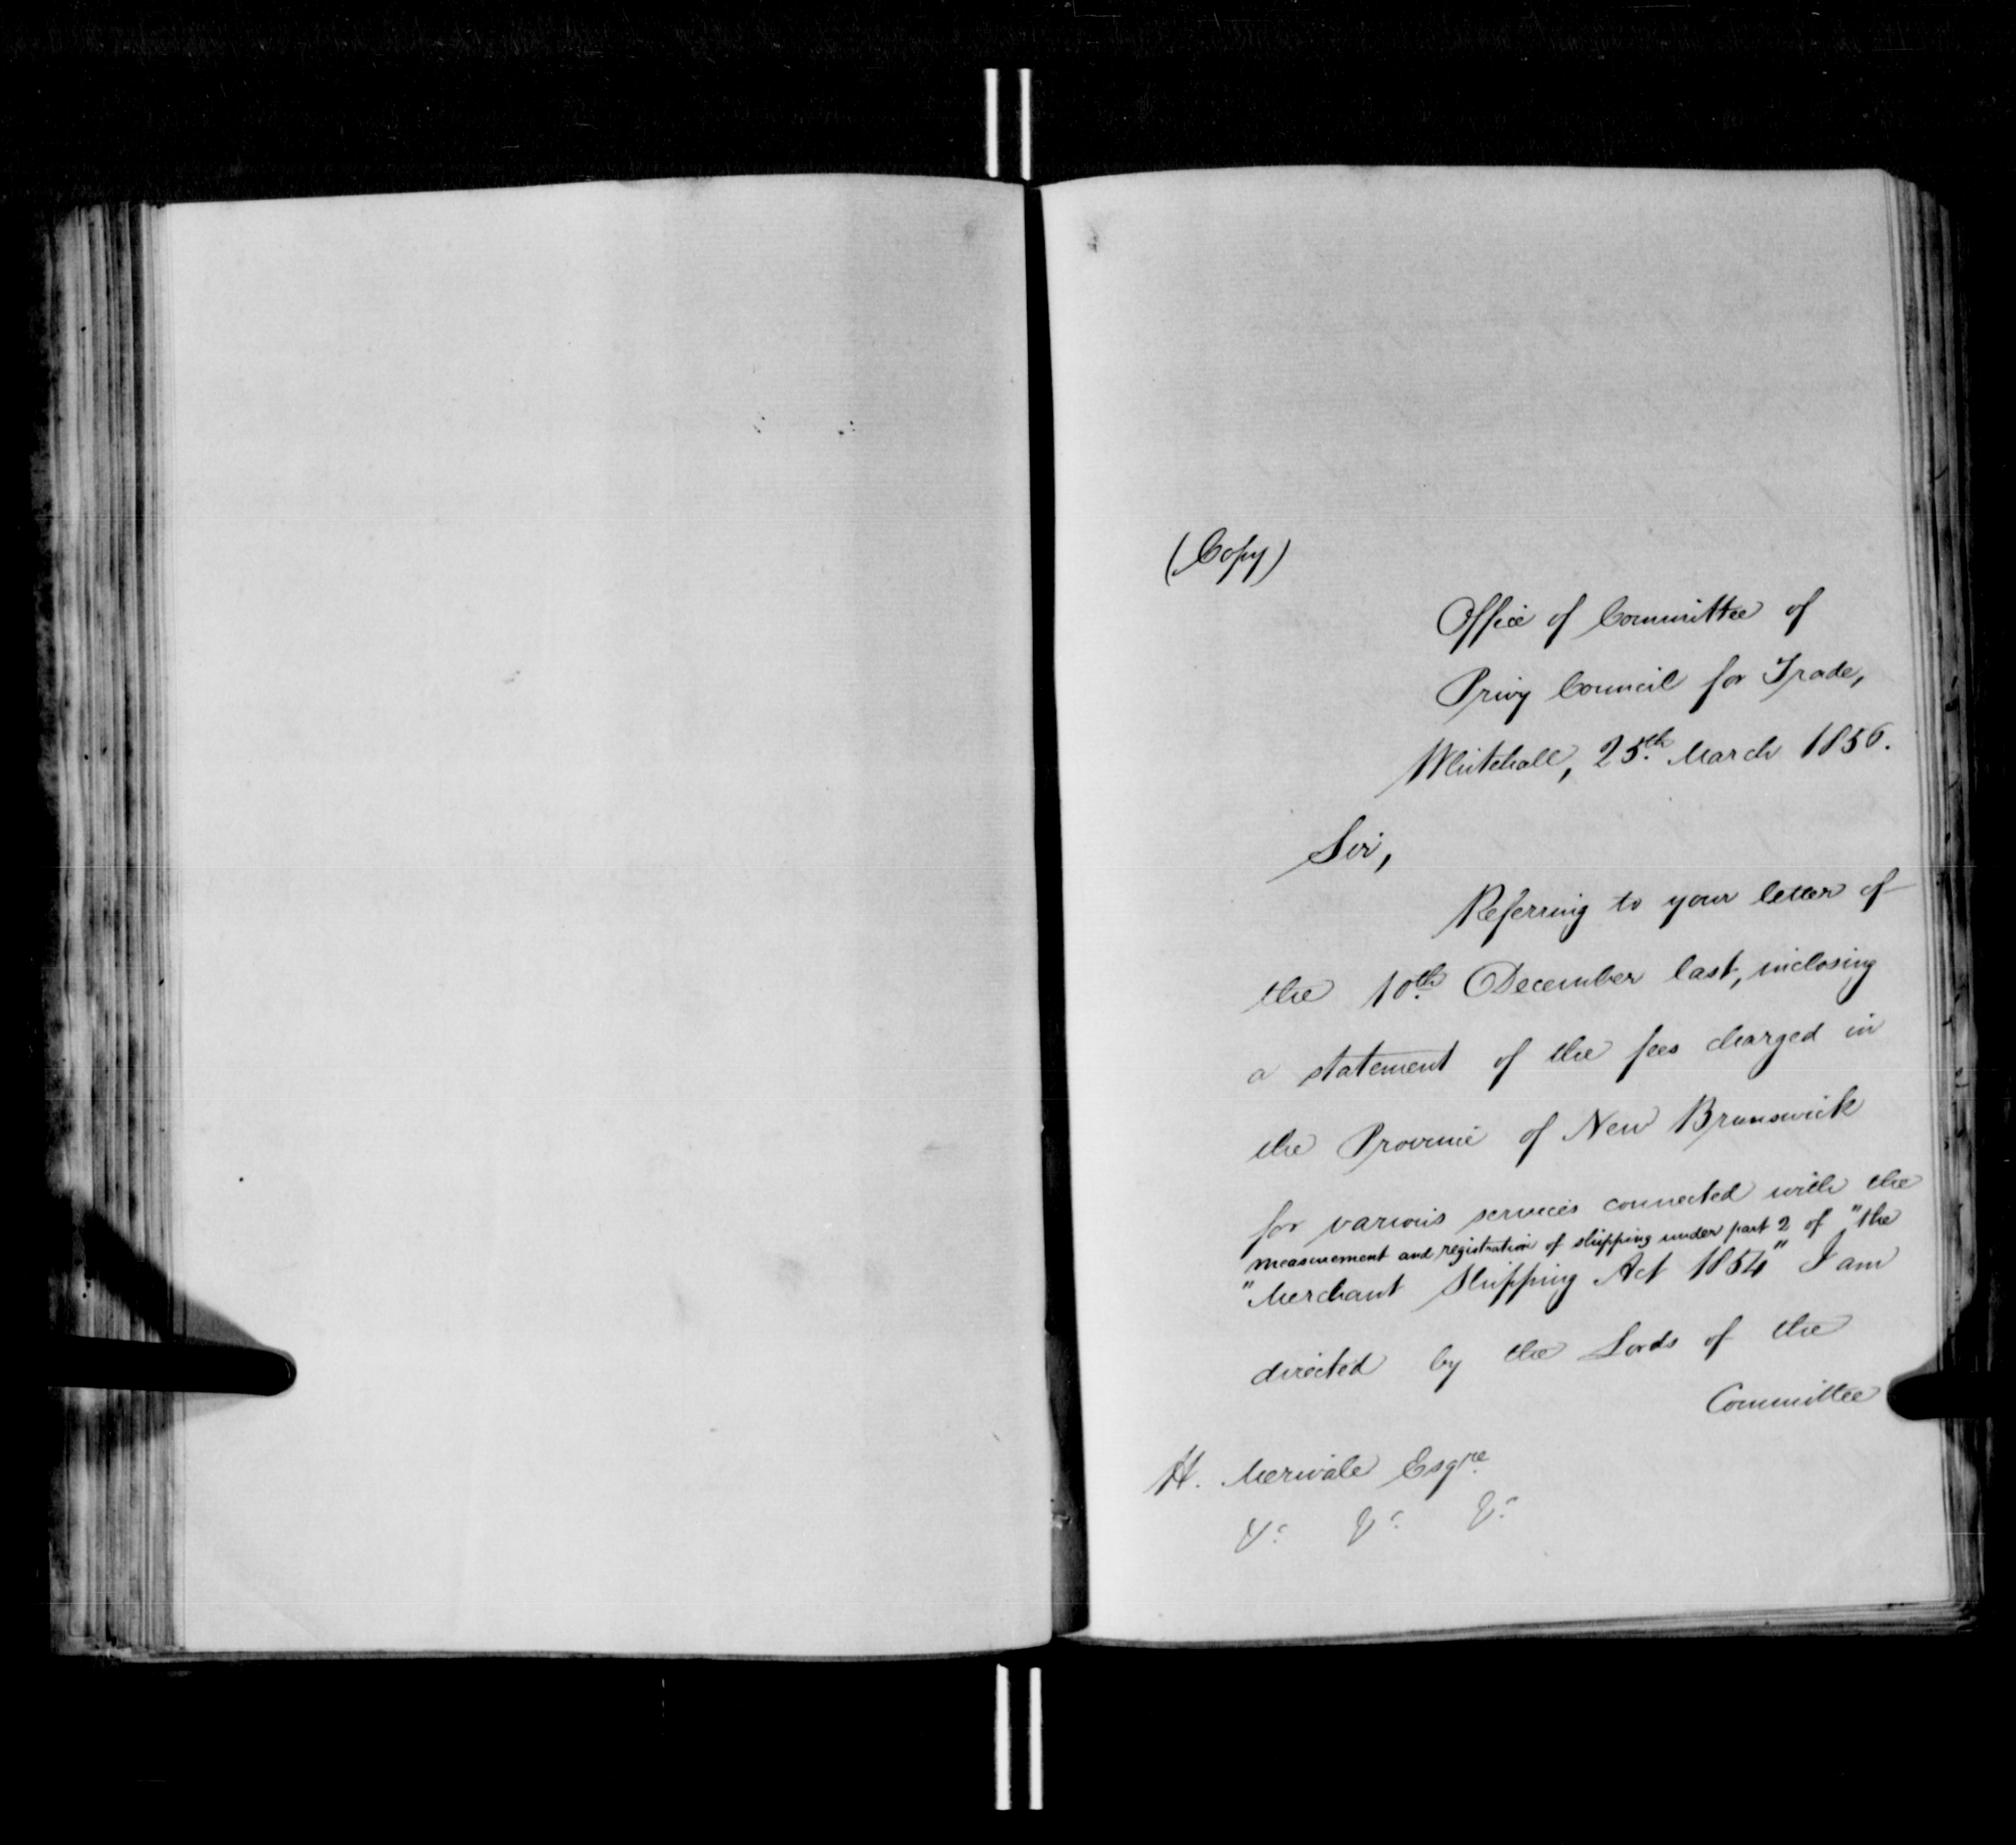 (Copy)
Office of Committee of
Privy Council for Trade,
Whitehall, 25th March 1856.
Sir,
Referring to your letter of
the 10th December last, inclosing
a statement of the fees charged in
the Province of New Brunswick
for various services connected with the
measurement and registration of shipping under part 2 of "the
"Merchant Shipping Act 1854" I am
directed by the Lords of the
Committee
H. Merivale Esqre
&c &c &c